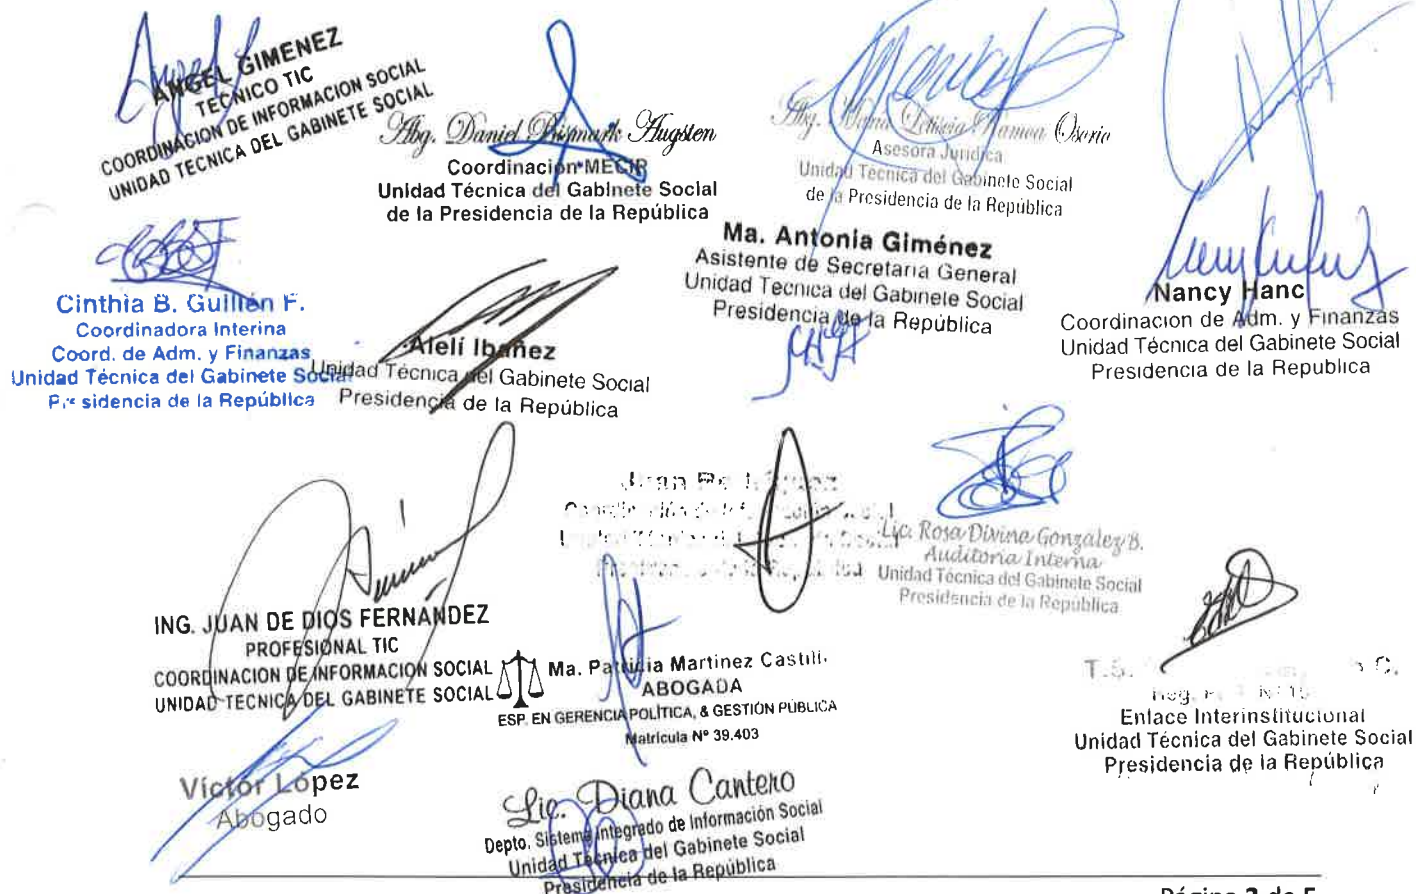 ANGEL GIMENEZ
TECNICO TIC
COORDINACION DE INFORMACION SOCIAL
UNIDAD TECNICA DEL GABINETE SOCIAL
Abg. Daniel Bismark Hugsten
Coordinación MECIP
Unidad Técnica del Gabinete Social
de la Presidencia de la República
Abg. María Leticia Osorio
Asesora Jurídica
Unidad Técnica del Gabinete Social
de la Presidencia de la República
Cinthia B. Guillén F.
Coordinadora Interina
Coord. de Adm. y Finanzas
Unidad Técnica del Gabinete Social
Presidencia de la República
Alelí Ibañez
Unidad Técnica del Gabinete Social
Presidencia de la República
Ma. Antonia Giménez
Asistente de Secretaria General
Unidad Tecnica del Gabinete Social
Presidencia de la República
Nancy Hanc
Coordinacion de Adm. y Finanzas
Unidad Técnica del Gabinete Social
Presidencia de la Republica
Juan
Lic. Rosa Divina González B.
Auditoria Interna
Unidad Técnica del Gabinete Social
Presidencia de la República
ING. JUAN DE DIOS FERNANDEZ
PROFESIONAL TIC
COORDINACION DE INFORMACION SOCIAL
UNIDAD TECNICA DEL GABINETE SOCIAL
Ma. Patricia Martinez
ABOGADA
ESP. EN GERENCIA POLÍTICA, & GESTIÓN PÚBLICA
Matrícula Nº 39.403
T.S.
Enlace Interinstitucional
Unidad Técnica del Gabinete Social
Presidencia de la República
Víctor López
Abogado
Lic. Diana Cantero
Depto. Sistema Integrado de Información Social
Unidad Técnica del Gabinete Social
Presidencia de la República
Página 3 de 5